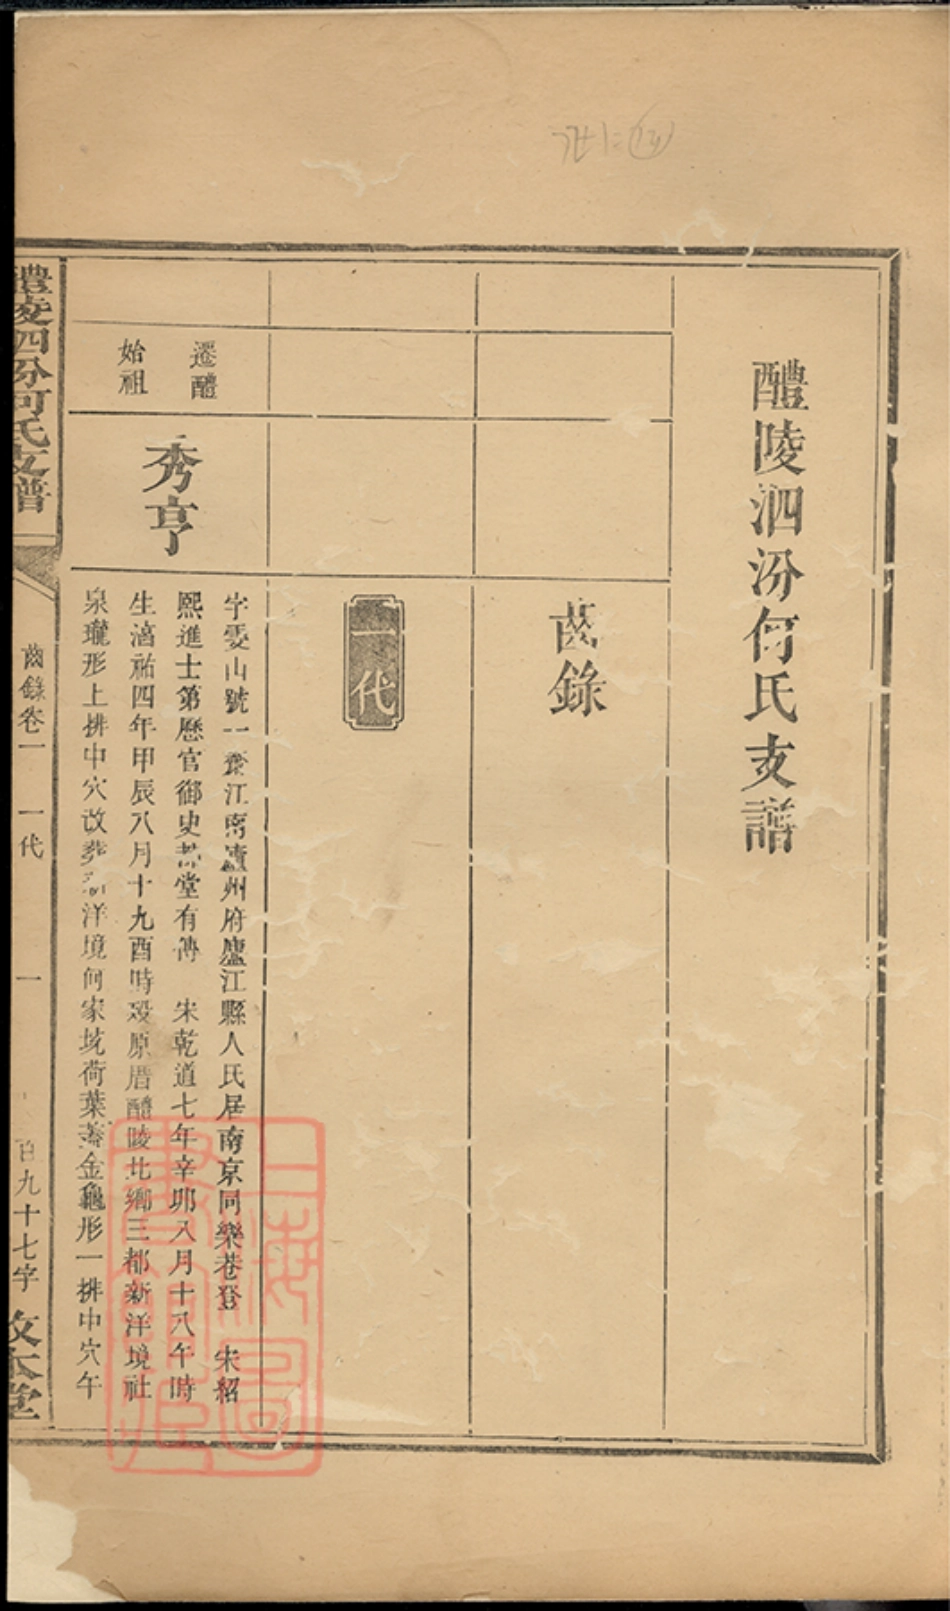 醴陵泗汾何氏支譜
齒錄
一代
遷醴
始祖
秀亨
字雯山號一齋江南廬州府廬江縣人氏居南京同樂巷登 宋紹
熙進士第歷官御史 堂有傳 宋乾道七年辛卯八月十八午時
生湻祐四年甲辰八月十九酉時歿原厝醴陵北鄉三都新洋境社
泉瓏形上排中穴改葬 洋境何家坑荷葉蓋金龜形一排中穴午
醴陵泗汾何氏支譜
齒錄卷一
一代
一
百九十七字
敦本堂
上海圖書館藏